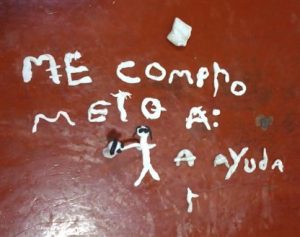 ME COMPrO
METO A:
A AYUDA
r